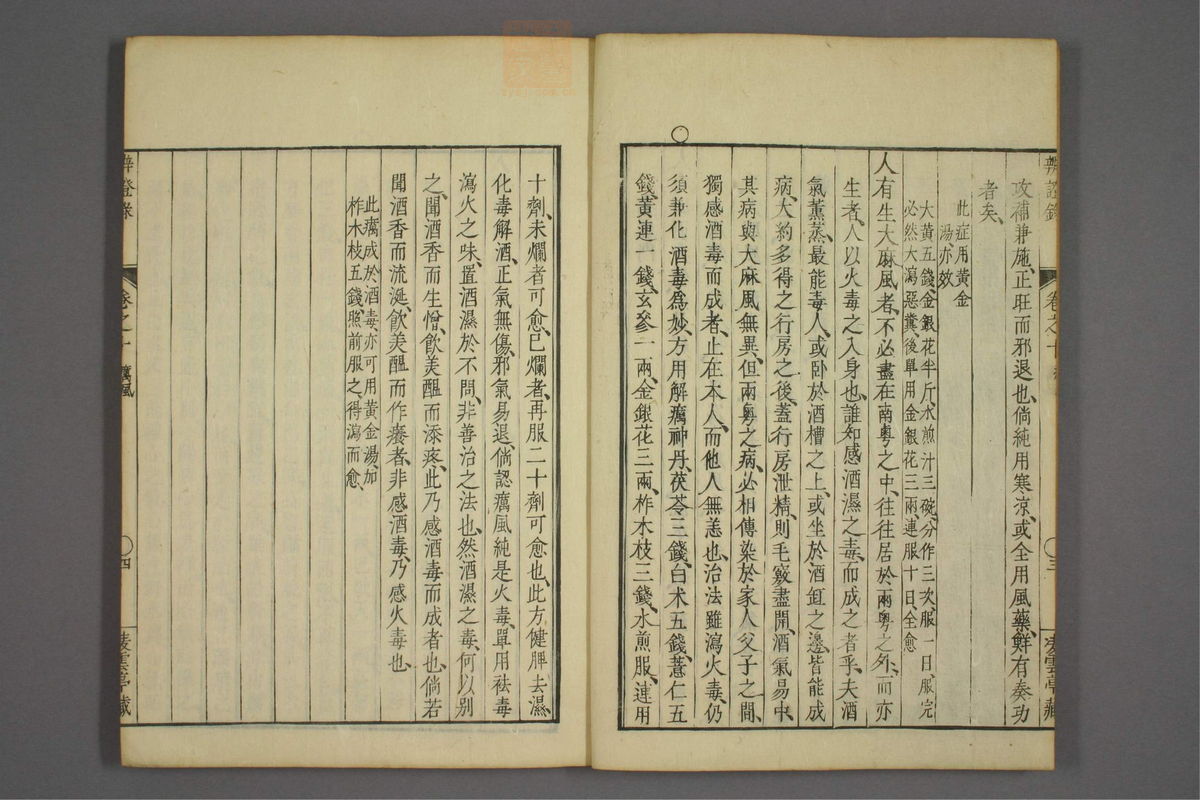 攻補兼施、正旺而邪退也、倘純用寒凉、或全用風藥、鮮有奏功
者矣、
此症用黃金
湯、亦效
大黃五錢、金銀花半斤、水煎汁三碗、分作三次、服一日、服完
必然大瀉惡糞、後單用金銀花三兩、連服十日、全愈
人有生大麻風者、不必盡在南粵之中、往往居於兩粵之外、而亦
生者、人以火毒之入身也、誰知感酒濕之毒而成之者乎、夫酒
氣薰蒸、最能毒人、或臥於酒槽之上、或坐於酒缸之邊、皆能成
病、大約多得之行房之後、蓋行房泄精、則毛竅盡開、酒氣易中、
其病與大麻風無異、但兩粵之病、必相傳染於家人父子之間、
獨感酒毒而成者、止在本人、而他人無恙也、治法雖瀉火毒、仍
須兼化酒毒為妙、方用解癘神丹、茯苓三錢、白术五錢、薏仁五
錢、黃連一錢、玄參一兩、金銀花三兩、柞木枝三錢、水煎服、連用
辨證錄
卷之十
〇三
凌雲亭藏
十劑、未爛者可愈、已爛者、再服二十劑可愈也、此方健脾去濕、
化毒解酒、正氣無傷、邪氣易退、倘認癘風純是火毒、單用祛毒
瀉火之味、置酒濕於不問、非善治之法也、然酒濕之毒、何以別
之、聞酒香而生憎、飲美醞而添疼、此乃感酒毒而成者也、倘若
聞酒香而流涎、飲美醞而作癢者、非感酒毒、乃感火毒也、
此癘成於酒毒、亦可用黃金湯、加
柞木枝五錢、照前服之、得瀉而愈、
辨證錄
卷之十 癘風
〇四
凌雲亭藏